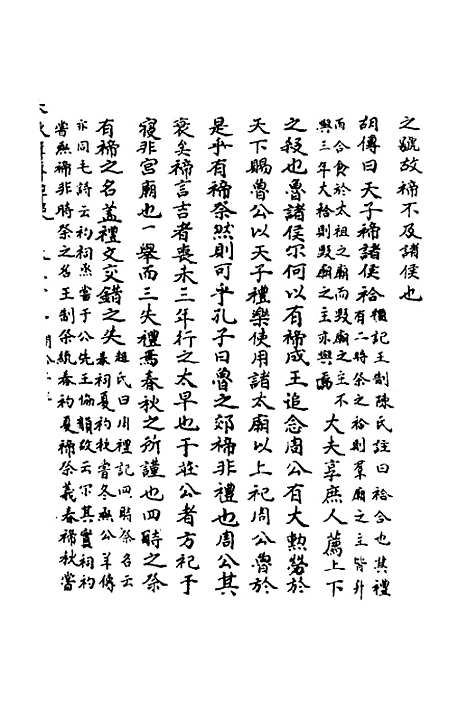 之號故禘不及諸侯也
胡傳曰天子禘諸侯祫
禮記王制陳氏註曰祫合也其禮
有二時祭之祫則羣廟之主皆升
而合食於太祖之廟而毀廟之主不
與三年大祫則毀廟之主亦與焉
大夫享庶人薦上下
之殺也魯諸侯尔何以有禘成王追念周公有大勲勞於
天下賜魯公以天子禮樂使用諸太廟以上祀周公魯於
是乎有禘祭然則可乎孔子曰魯之郊禘非禮也周公其
衰矣禘言吉者喪未三年行之太早也于莊公者方祀于
寢非宮廟也一舉而三失禮焉春秋之所謹也四時之祭
有禘之名蓋禮文交錯之失
趙氏曰周禮記四時祭名云
春祠夏礿秋嘗冬烝公羊傳
亦同毛詩云礿祠烝嘗于公先王倫韻故云尔其實祠礿
嘗烝禘非時祭之名王制祭統春礿夏禘祭義春禘秋嘗